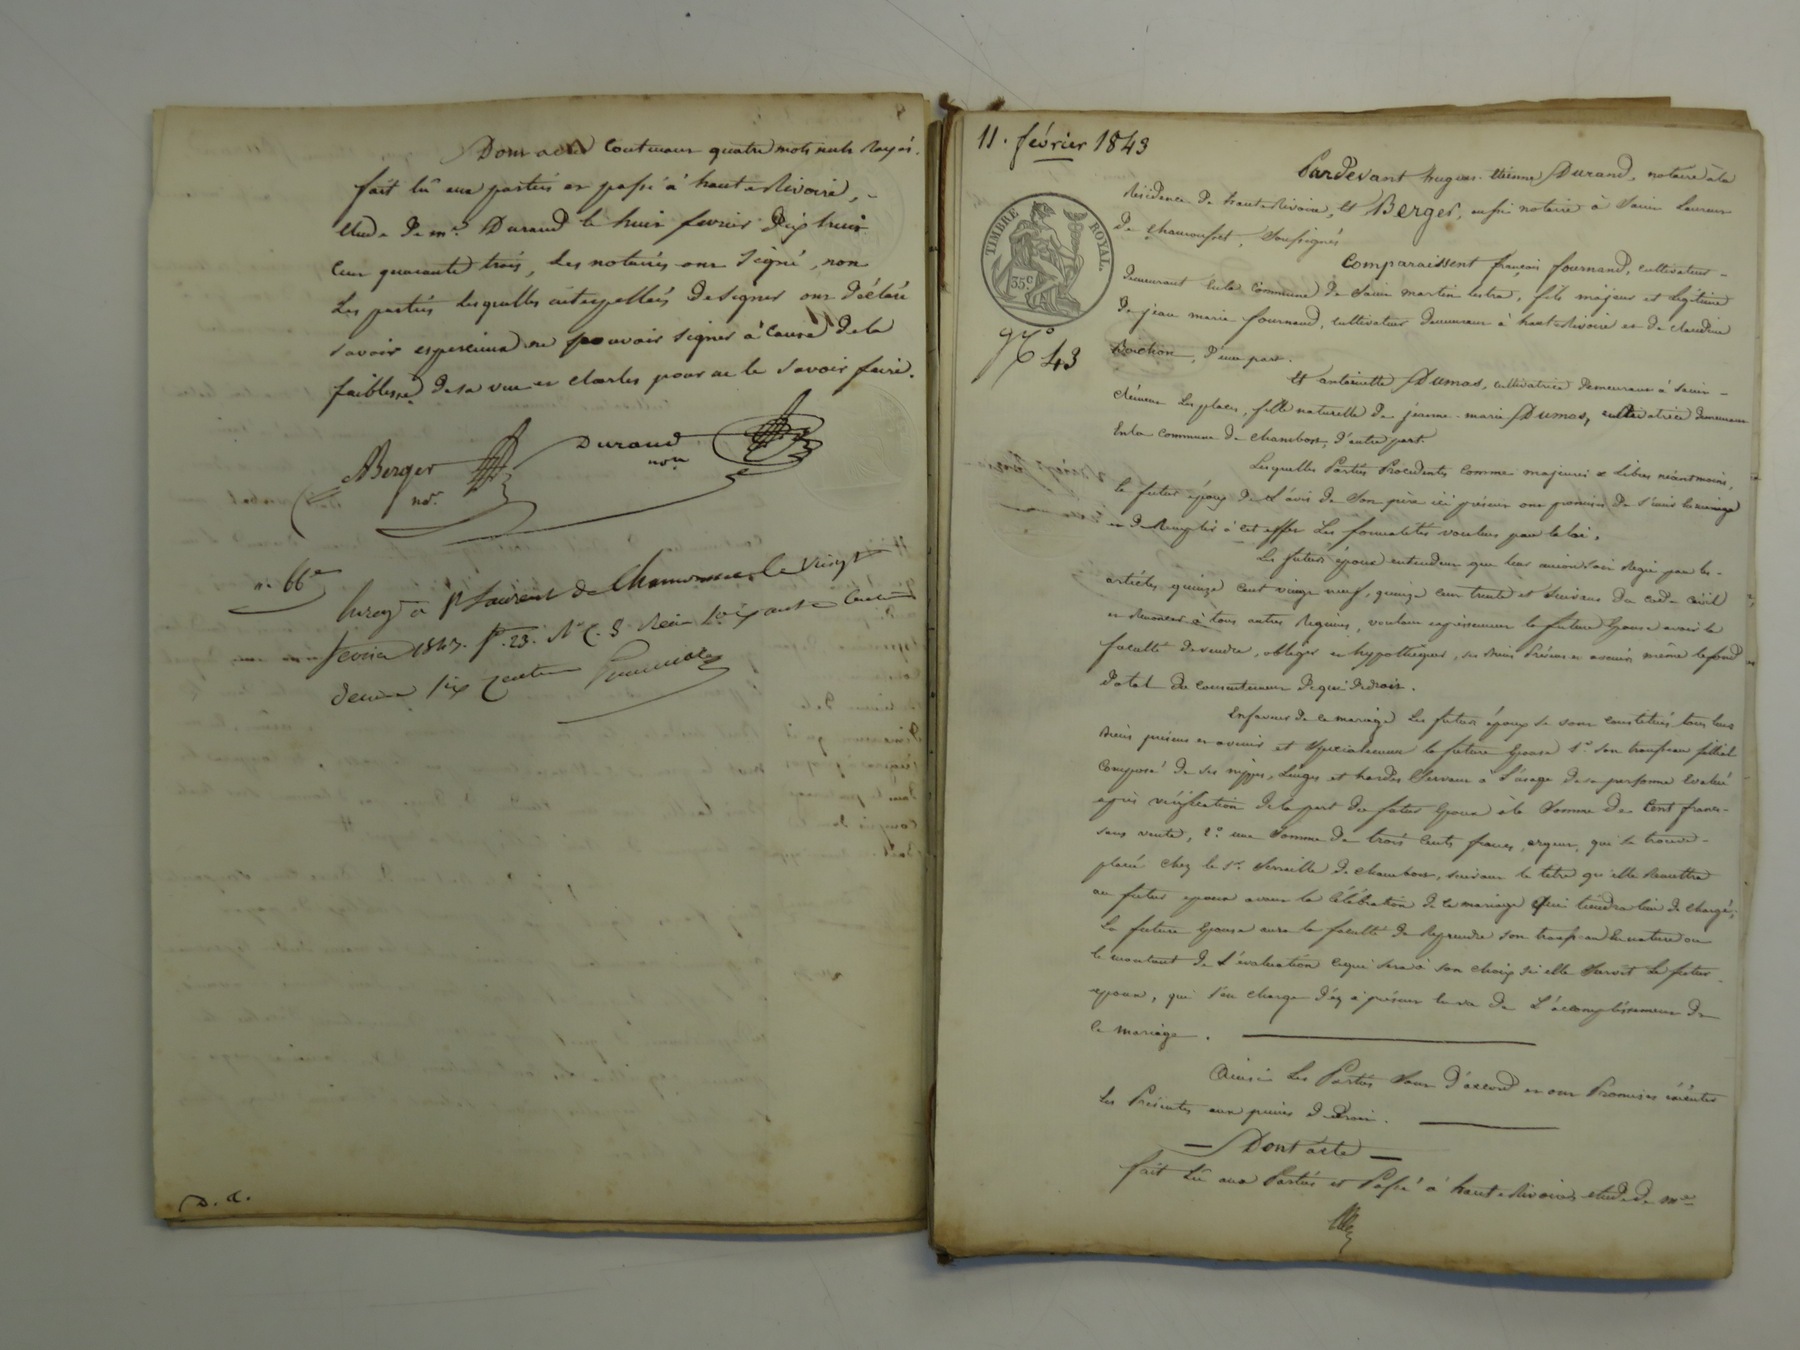 Dont acte Contenant quatre mots nuls rayés.
fait lû aux parties et passé à haute Rivoire,
étude de me. Durand le huit fevrier dix huit
cent quarante trois, Les notaires ont signé, non
Les parties lesquelles interpellées de signer ont déclaré
savoir ne pouvoir signer à Cause de la
faiblesse de sa vue et Charles pour ne le savoir faire.
Berger
nore
Durand
nore
n. 66
à St Laurent de Chamousset, Le vingt
fevrier 1843. fo. 23. Ro C. 8. Reçu
Six centimes
D. C.
11. février 1843
TIMBRE ROYAL.
35c
No 43
Pardevant hugues-étienne Durand, notaire à la
Résidence de haute Rivoire, et Berger, aussi notaire à Saint Laurent
De Chamousset, Soussignés
Comparaissent françois fournand, cultivateur
demeurant en la commune de Saint martin lestra, fils majeur et légitime
De jean marie fournand, cultivateur demeurant à haute Rivoire et de claudine
, d'une part.
Et antoinette Dumas, cultivatrice demeurant à Saint
Clément Les places, fille naturelle de jeanne-marie Dumas, cultivatrice demeurant
En la commune de Chambost, d'autre part.
Lesquelles Parties Procédantes comme majeures et Libres néantmoins,
le futur époux de L'avis de son père ici présent ont promis de s'unir en mariage
et de Remplir à cet effet Les formalités voulues par la loi.
Les futurs époux entendent que leur union soit Régie par les
articles quinze cent vingt neuf, quinze cent trente et Suivans du code civil
et Renoncer à tous autres Régimes, voulant expressément la future Epouse avoir la
faculté de vendre, obliger et hypothéquer, ses biens Présens et avenir même le fond
Dotal du consentement de qui de droit.
En faveur de ce mariage Les futurs époux se sont constitués tous leurs
Biens présens et avenir et Spécialement la future Epouse 1o. son trousseau
Composé de ses nippes, Linges et hardes Servant à L'usage de sa personne Evalué
après vérification de la part du futur Epoux à la Somme de Cent francs
sans vente, 2o. une Somme de trois Cents francs, argent, qui se trouve
placée chez le sr. de Chambost, suivant le titre qu'elle Remettra
au futur epoux avant la Célébration de ce mariage Qui tiendra lieu de chargé;
La future Epouse aura la faculté de Reprendre son trousseau En nature ou
le montant de L'évaluation ce qui sera à son choix si elle Survit Le futur
epoux, qui s'en charge d'és à présent en vu de L'accomplissement de
ce mariage.
Ainsi Les Parties Sont d'accord et ont Promis éxécuter
Les Présentes aux peines de Droit.
Dont acte
fait Lû aux Parties et Passé à haute Rivoire, étude de me